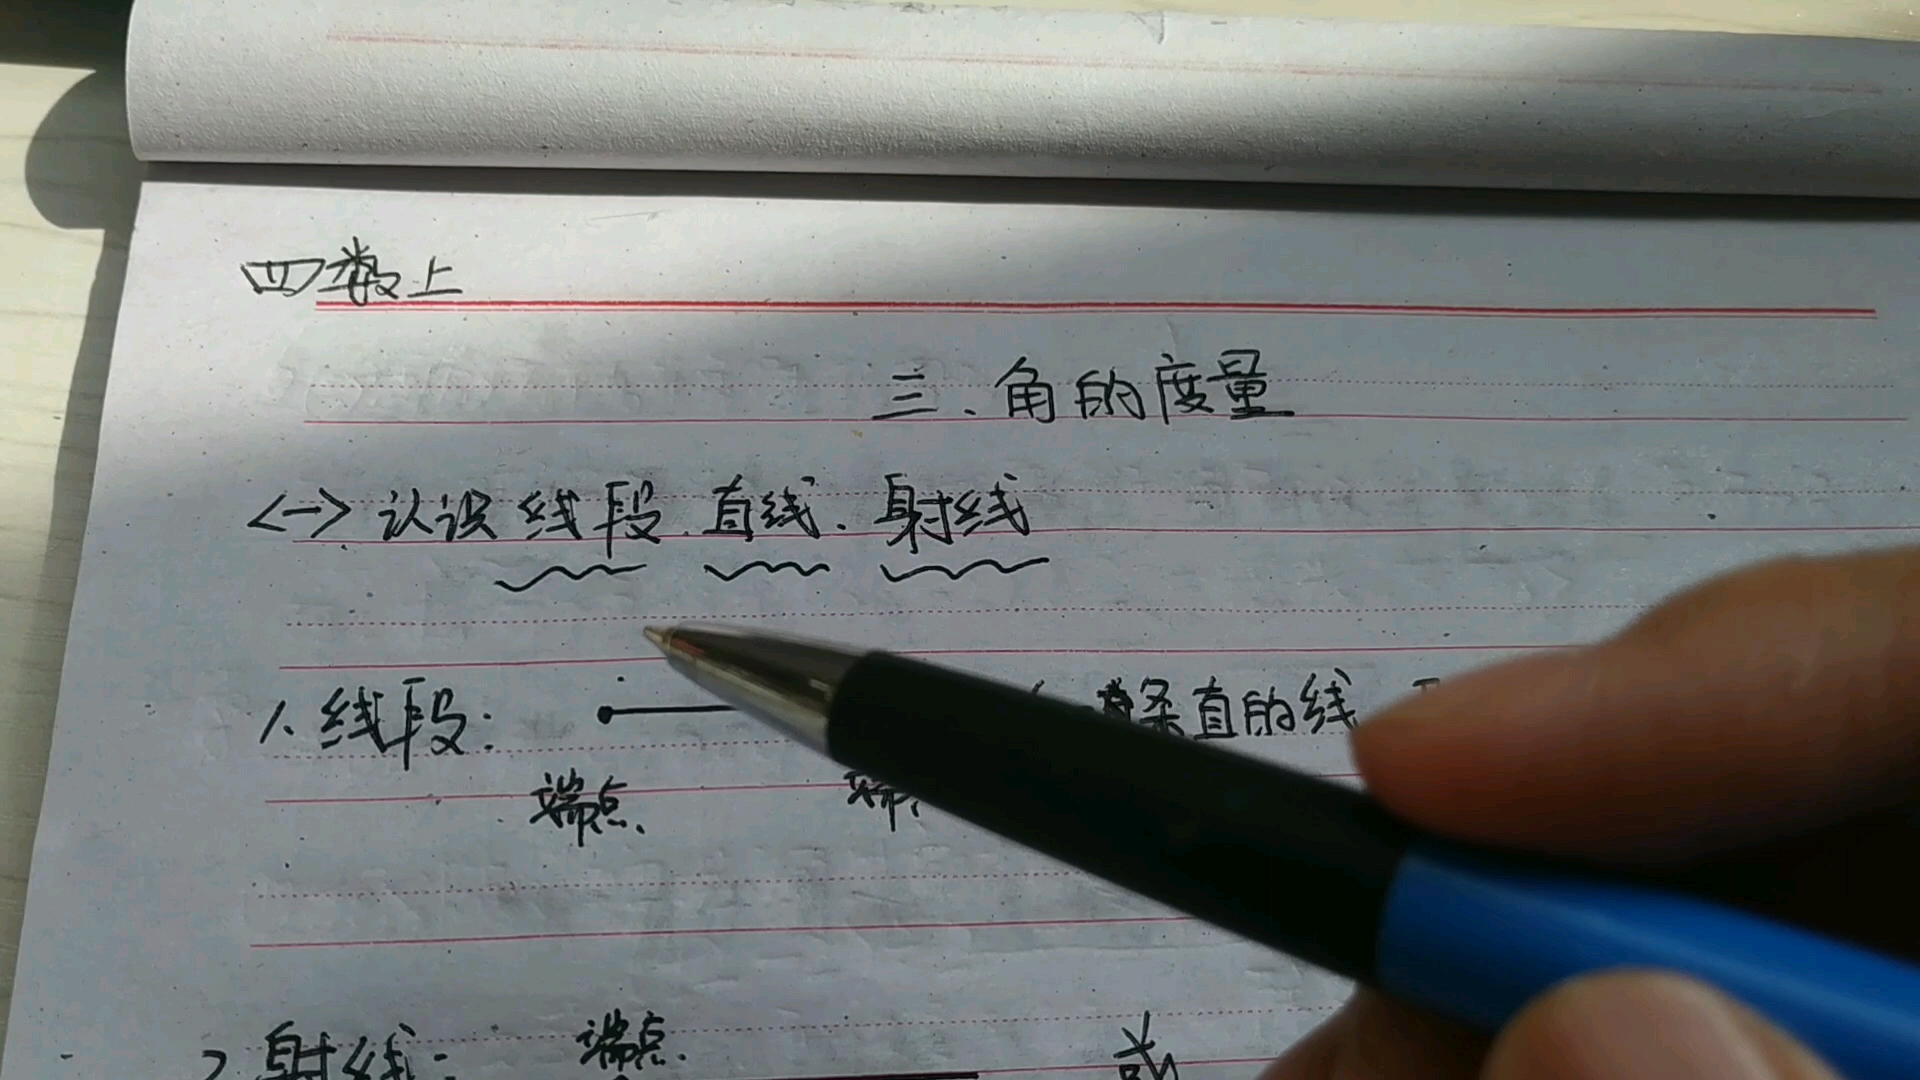 四数上
三、角的度量
<一>认识线段、直线、射线
1、线段: 条直的线
端点 端
2、射线: 端点